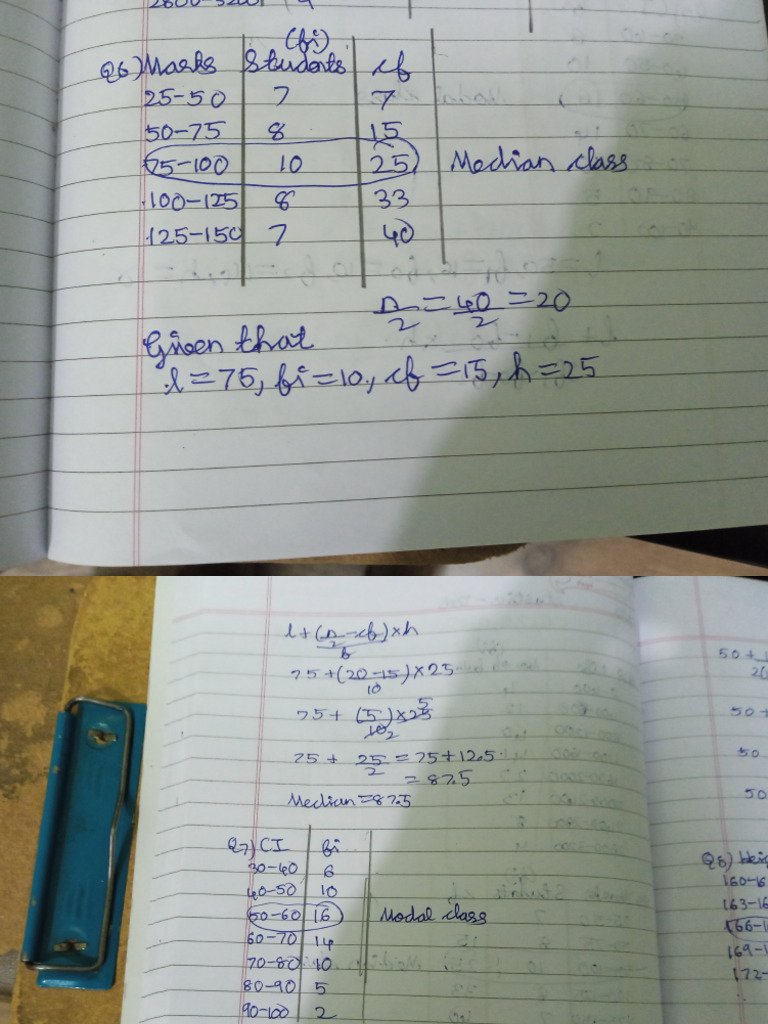 2800-3200
(fi)
Q6) Marks Students cf
25-50 7 7
50-75 8 15
75-100 10 25 Median class
100-125 8 33
125-150 7 40
n/2 = 40/2 = 20
Given that
l = 75, fi = 10, cf = 15, h = 25
l + (n/2 - cf)/f × h
75 + (20-15)/10 × 25
75 + (5)/10 2 × 25 5
75 + 25/2 = 75 + 12.5
= 87.5
Median = 87.5
Q7) CI fi
30-40 6
40-50 10
50-60 16 Modal class
60-70 14
70-80 10
80-90 5
90-100 2
50 +
50 +
50
50
Q8)
160-16
163-16
166-1
169-1
172-